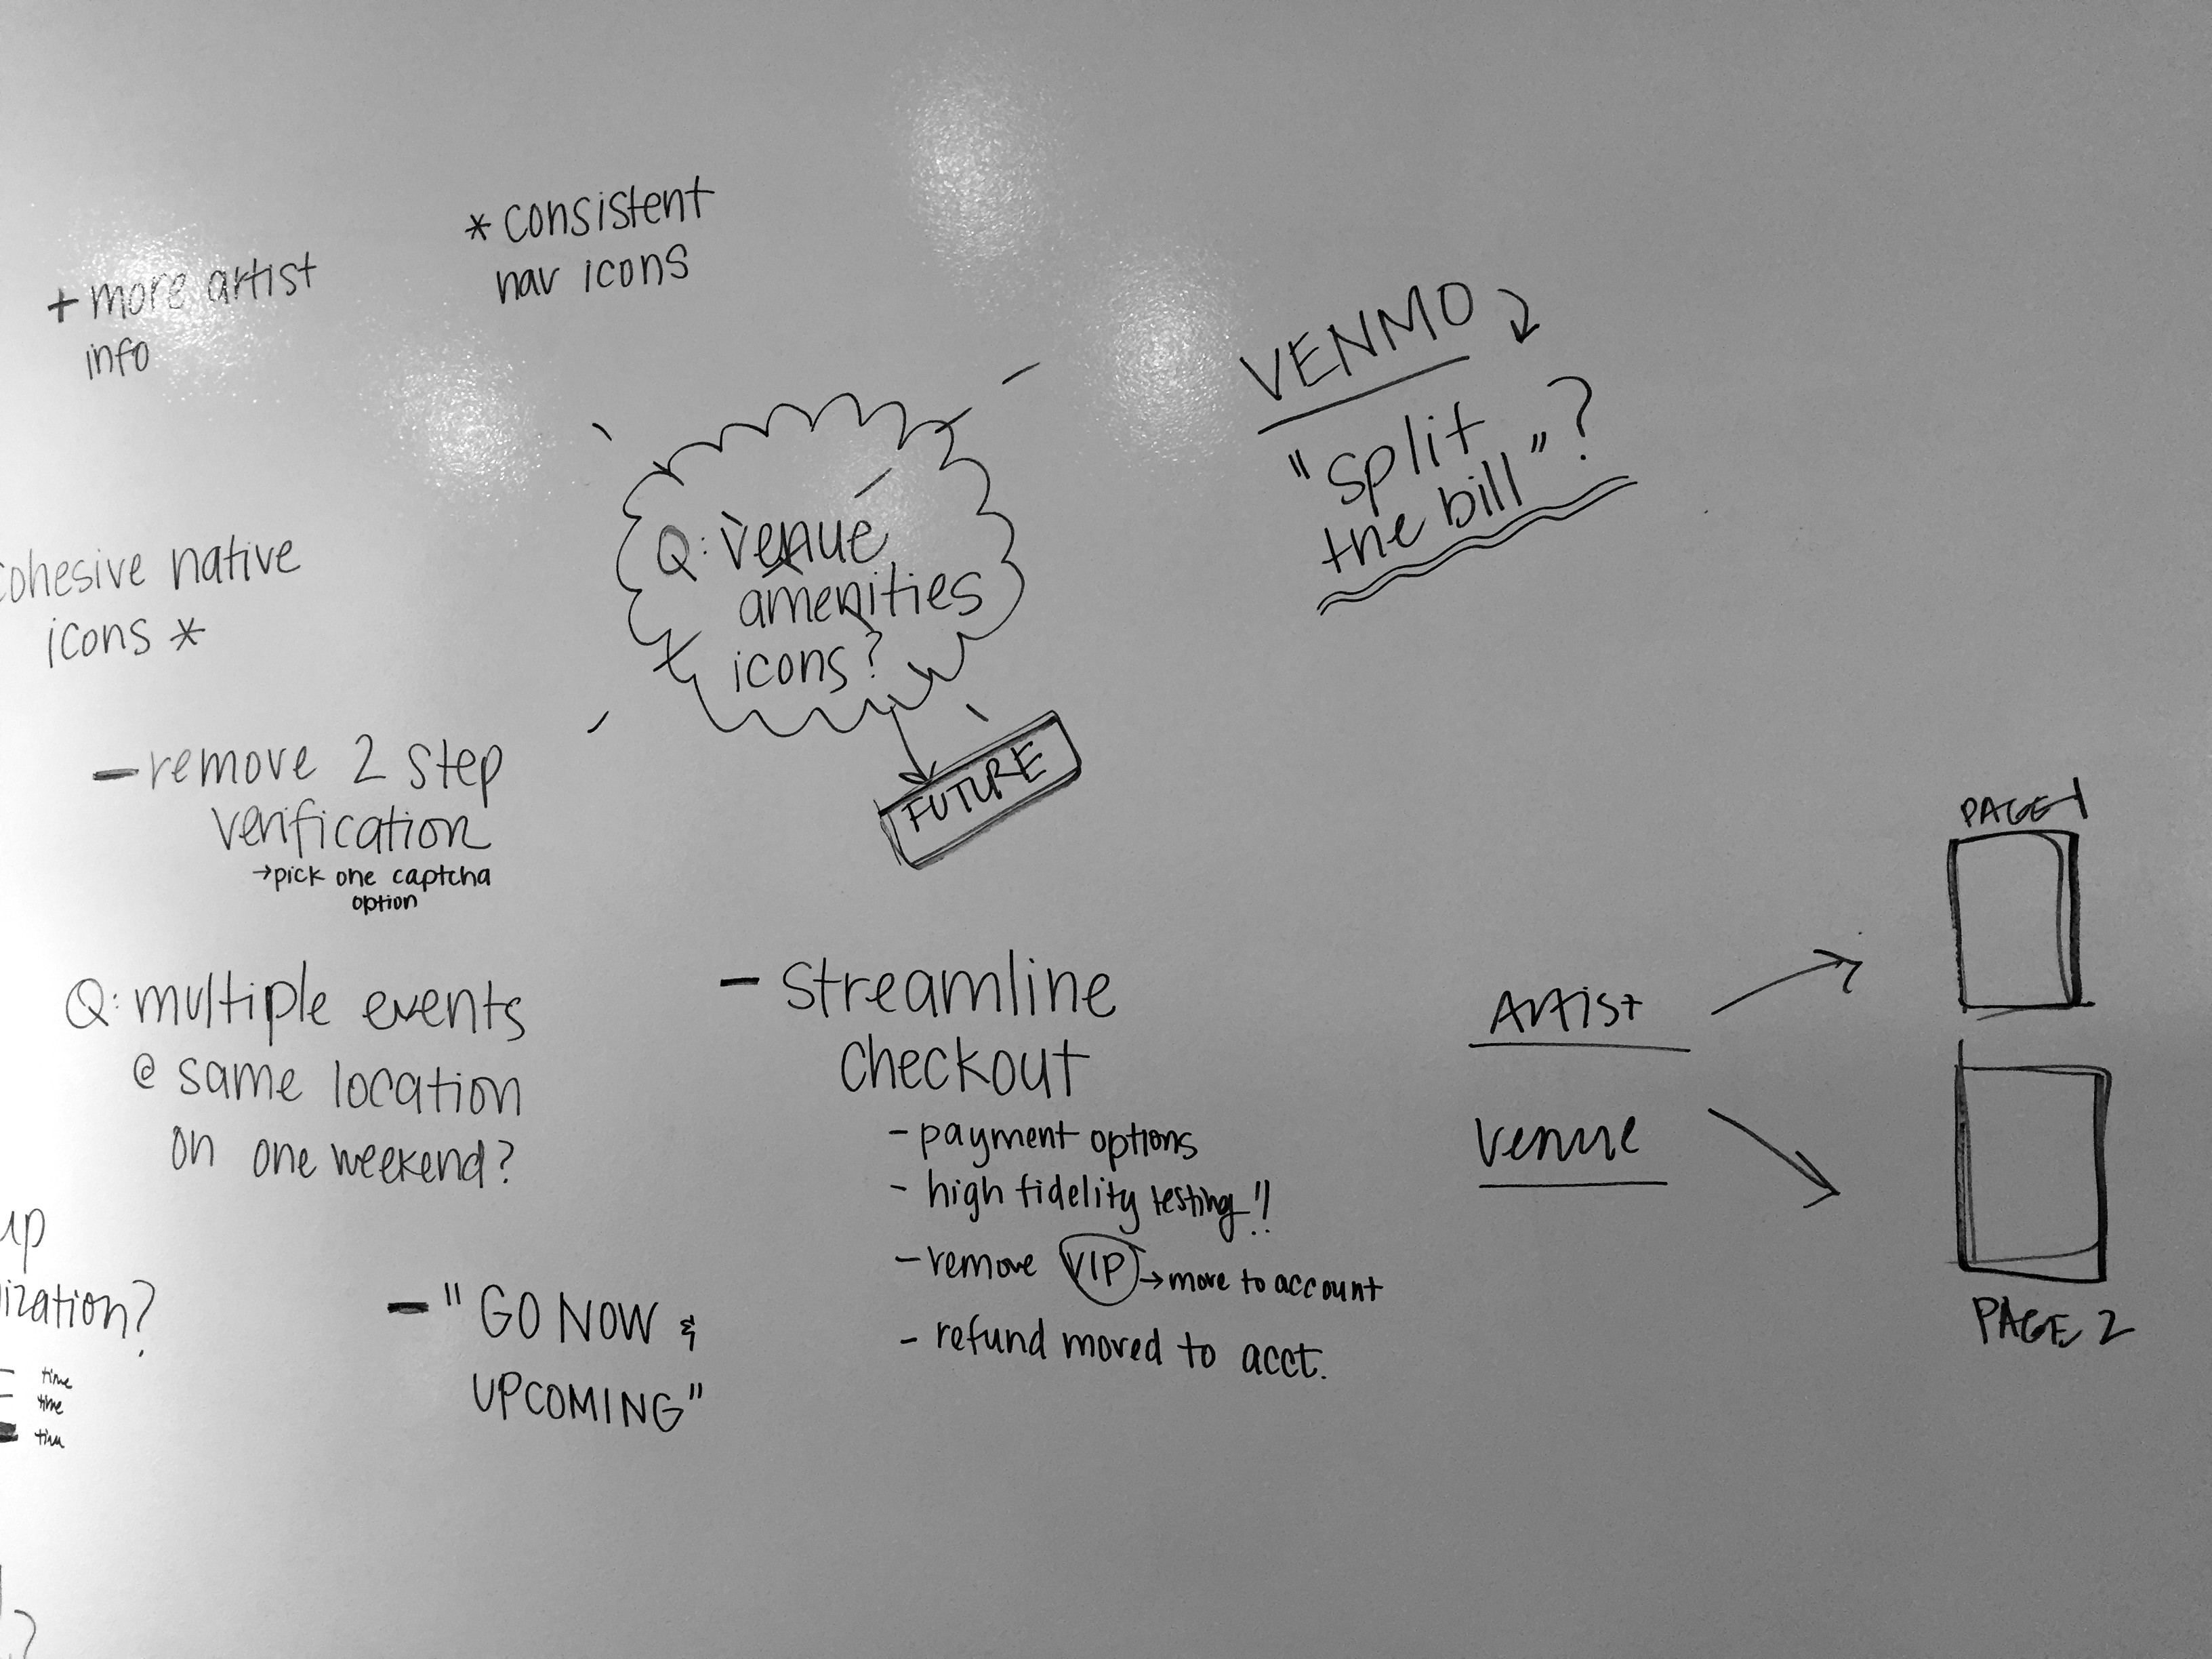 * consistent
nav icons
+ more artist
info
VENMO
"split
the bill"?
Q: venue
amenities
icons?
FUTURE
cohesive native
icons *
- remove 2 step
verification
→ pick one captcha
option
Q: multiple events
@ same location
on one weekend?
up
ization?
time
time
time
- "GO NOW &
UPCOMING"
- streamline
checkout
- payment options
- high fidelity testing!!
- remove VIP → move to account
- refund moved to acct.
Artist
venue
PAGE 1
PAGE 2
?